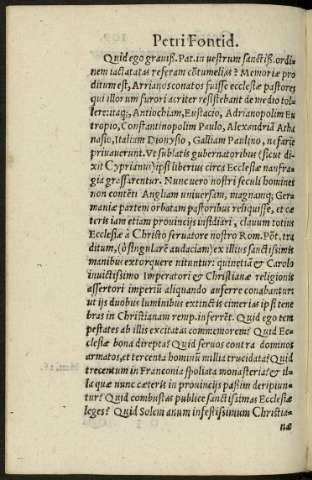 Petri Fontid.
Quid ego grauiss. Pat. in vestrum sanctiss. ordi
nem iactatas referam cōtumelias? Memoriæ pro
ditum est, Arrianos conatos fuisse ecclesiæ pastores
qui illorum furori acriter resistebant de medio tol
lere: itaq;, Antiochiam, Eustacio, Adrianopolim Eu
tropio, Constantinopolim Paulo, Alexandriā Atha
nasio, Italiam Dionysio, Galliam Paulino, nefariè
priuauerunt. Vt sublatis gubernatoribus (sicut di-
xit Cyprianus) ipsi libertus circa Ecclesiæ naufra-
gia grassarentur. Nunc vero nostri seculi homines
non contēti Angliam vniuersam, magnamq; Ger
maniæ partem orbatam pastoribus reliquisse, et cæ
teris iam etiam prouincijs insidiari, clauum totius
Ecclesiæ à Christo seruatore nostro Rom. Pōt. tra
ditum, (ô singularē audaciam) ex illius sanctissimis
manibus extorquere nituntur: quinetiā & Carolo
inuictissimo Imperatori & Christianæ religionis
assertori imperiū aliquando auferre conabantur:
vt ijs duobus luminibus extinctis cimerias ipsi tene
bras in Christianam remp. inferrēt. Quid ego tem
pestates ab illis excitatas commemorem? Quid Ec-
clesiæ bona direpta? Quid seruos contra dominos
armatos, et tercenta hominū millia trucidata? Quid
trecentum in Franconia spoliata monasteria? & il-
la quæ nunc cæteris in prouincijs passim deripiun-
tur? Quid combustas publice sanctissimas Ecclesiæ
leges? Quid Solem anum infestissimum Christia-
næ